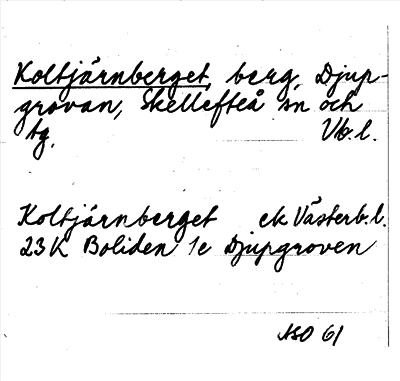 Koltjärnberget, berg, Djup-
grovan, Skellefteå sn och
tg. Vb. l.
Koltjärnberget ek Västerb.l.
23K Boliden 1e Djupgroven
NSO 61